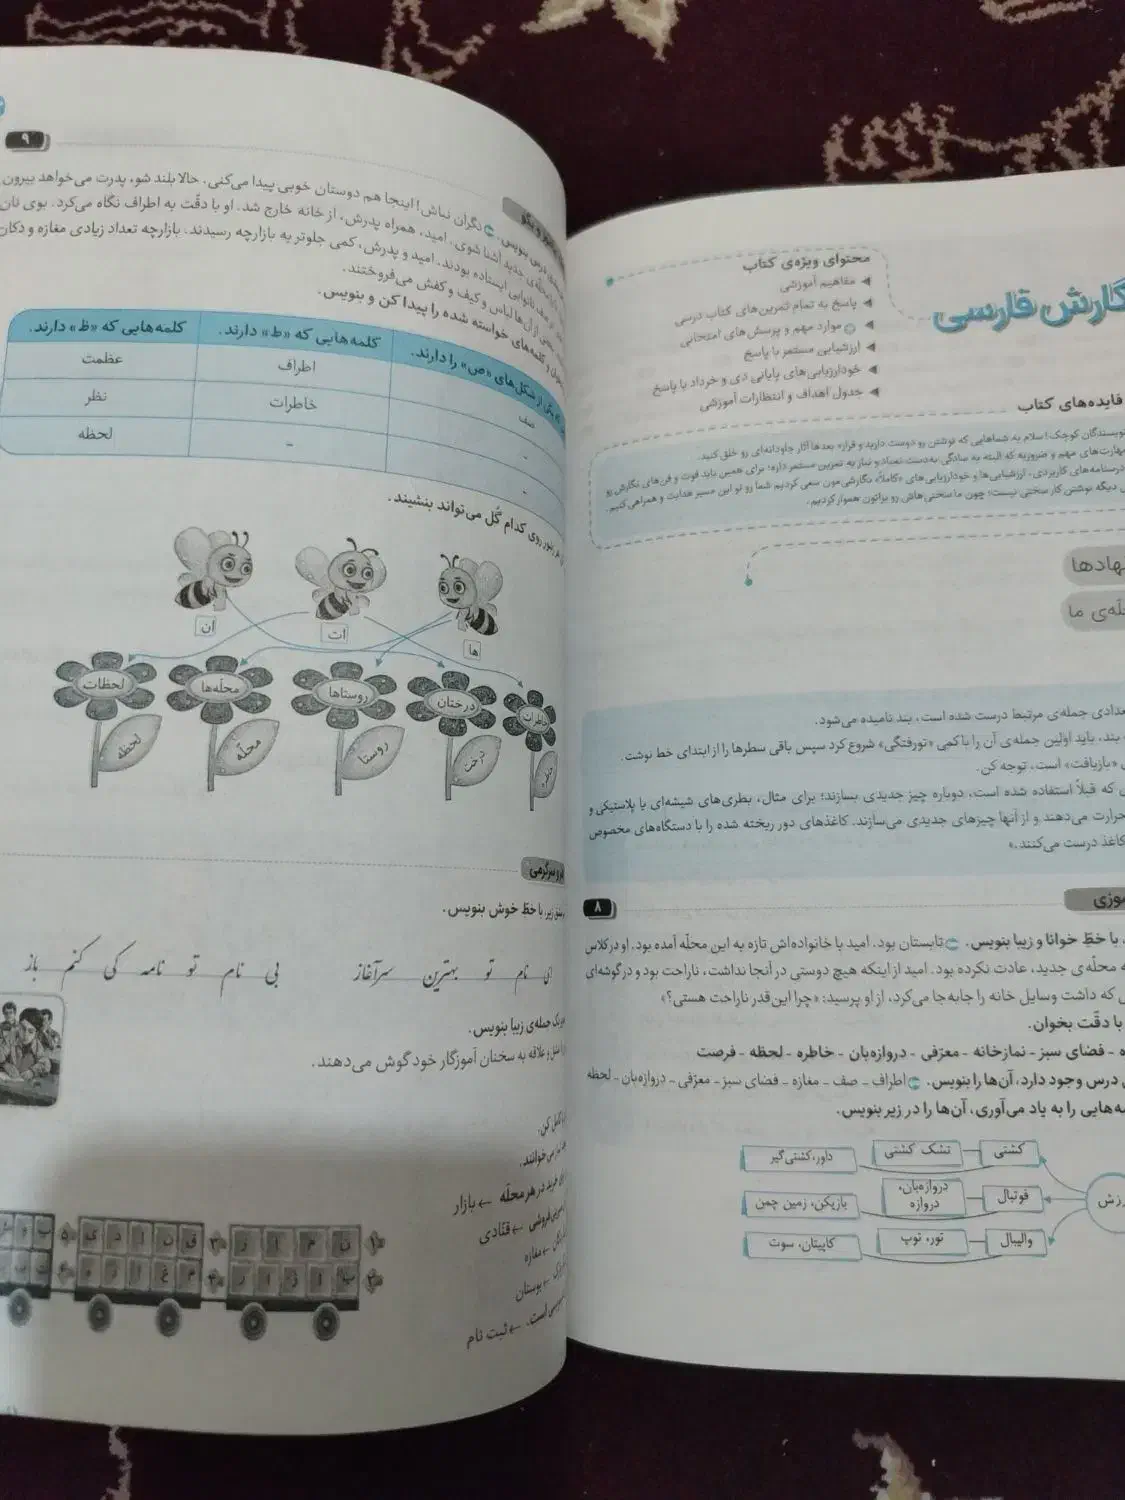 نگارش فارسی
محتوای ویژه‌ی کتاب
مفاهیم آموزشی
پاسخ به تمام تمرین‌های کتاب درسی
موارد مهم و پرسش‌های امتحانی
ارزشیابی مستمر با پاسخ
خودارزیابی‌های پایانی دی و خرداد با پاسخ
جدول اهداف و انتظارات آموزشی
فایده‌های کتاب
نویسندگان کوچک! سلام به شماهایی که نوشتن رو دوست دارید و قراره بعدها آثار جاودانه‌ای رو خلق کنید.
مهارت‌های مهم و ضروریه که البته به سادگی به‌دست نمیاد و نیاز به تمرین مستمر داره؛ برای همین باید فوت و فن‌های نگارش رو
درسنامه‌های کاربردی، ارزشیابی‌ها و خودارزیابی‌های «کاملاً» نگارشی‌مون سعی کردیم شما رو تو این مسیر هدایت و همراهی کنیم.
دیگه نوشتن کار سختی نیست؛ چون ما سختی‌هاش رو براتون هموار کردیم.
ی ما
تعدادی جمله‌ی مرتبط درست شده است، بند نامیده می‌شود.
بند، باید اولین جمله‌ی آن را با کمی «تورفتگی» شروع کرد سپس باقی سطرها را از ابتدای خط نوشت.
«بازیافت» است، توجه کن.
که قبلاً استفاده شده است، دوباره چیز جدیدی بسازند؛ برای مثال، بطری‌های شیشه‌ای یا پلاستیکی و
حرارت می‌دهند و از آنها چیزهای جدیدی می‌سازند. کاغذهای دور ریخته شده را با دستگاه‌های مخصوص
کاغذ درست می‌کنند.»
۸
با خطِ خوانا و زیبا بنویس. تابستان بود. امید با خانواده‌اش تازه به این محلّه آمده بود. او در کلاس
محلّه‌ی جدید، عادت نکرده بود. امید از اینکه هیچ دوستی در آنجا نداشت، ناراحت بود و در گوشه‌ای
که داشت وسایل خانه را جابه‌جا می‌کرد، از او پرسید: «چرا این‌قدر ناراحت هستی؟»
با دقّت بخوان.
– فضای سبز – نمازخانه – معرّفی – دروازه‌بان – خاطره – لحظه – فرصت
درس وجود دارد، آن‌ها را بنویس. اطراف – صف – مغازه – فضای سبز – معرّفی – دروازه‌بان – لحظه
هایی را به یاد می‌آوری، آن‌ها را در زیر بنویس.
کشتی
تشک کشتی
داور، کشتی‌گیر
فوتبال
دروازه‌بان،
دروازه
بازیکن، زمین چمن
والیبال
تور، توپ
کاپیتان، سوت
۹
درس بنویس. نگران نباش! اینجا هم دوستان خوبی پیدا می‌کنی. حالا بلند شو، پدرت می‌خواهد بیرون
جدید آشنا شوی. امید، همراه پدرش، از خانه خارج شد. او با دقّت به اطراف نگاه می‌کرد. بوی نان
نانوایی ایستاده بودند. امید و پدرش، کمی جلوتر به بازارچه رسیدند. بازارچه تعداد زیادی مغازه و دکان
از آن‌ها لباس و کیف و کفش می‌فروختند.
کلمه‌های خواسته شده را پیدا کن و بنویس.
یکی از شکل‌های «ص» را دارند.
کلمه‌هایی که «ط» دارند.
کلمه‌هایی که «ظ» دارند.
صف
اطراف
عظمت
–
خاطرات
نظر
–
–
لحظه
روی کدام گُل می‌تواند بنشیند.
ها
ات
ان
درختان
روستاها
محلّه‌ها
لحظات
درخت
روستا
محلّه
لحظه
زیر، با خطّ خوش بنویس.
ای نام تو بهترین سرآغاز
بی نام تو نامه کی کنم باز
یک جمله‌ی زیبا بنویس.
و علاقه به سخنان آموزگار خود گوش می‌دهند.
خرید در هر محلّه ← بازار
← قنّادی
← مغازه
← بوستان
است. ← ثبت نام
ن م ا ز
ق ن ا د ی
ب ا ز ا ر
م غ ا ز ه